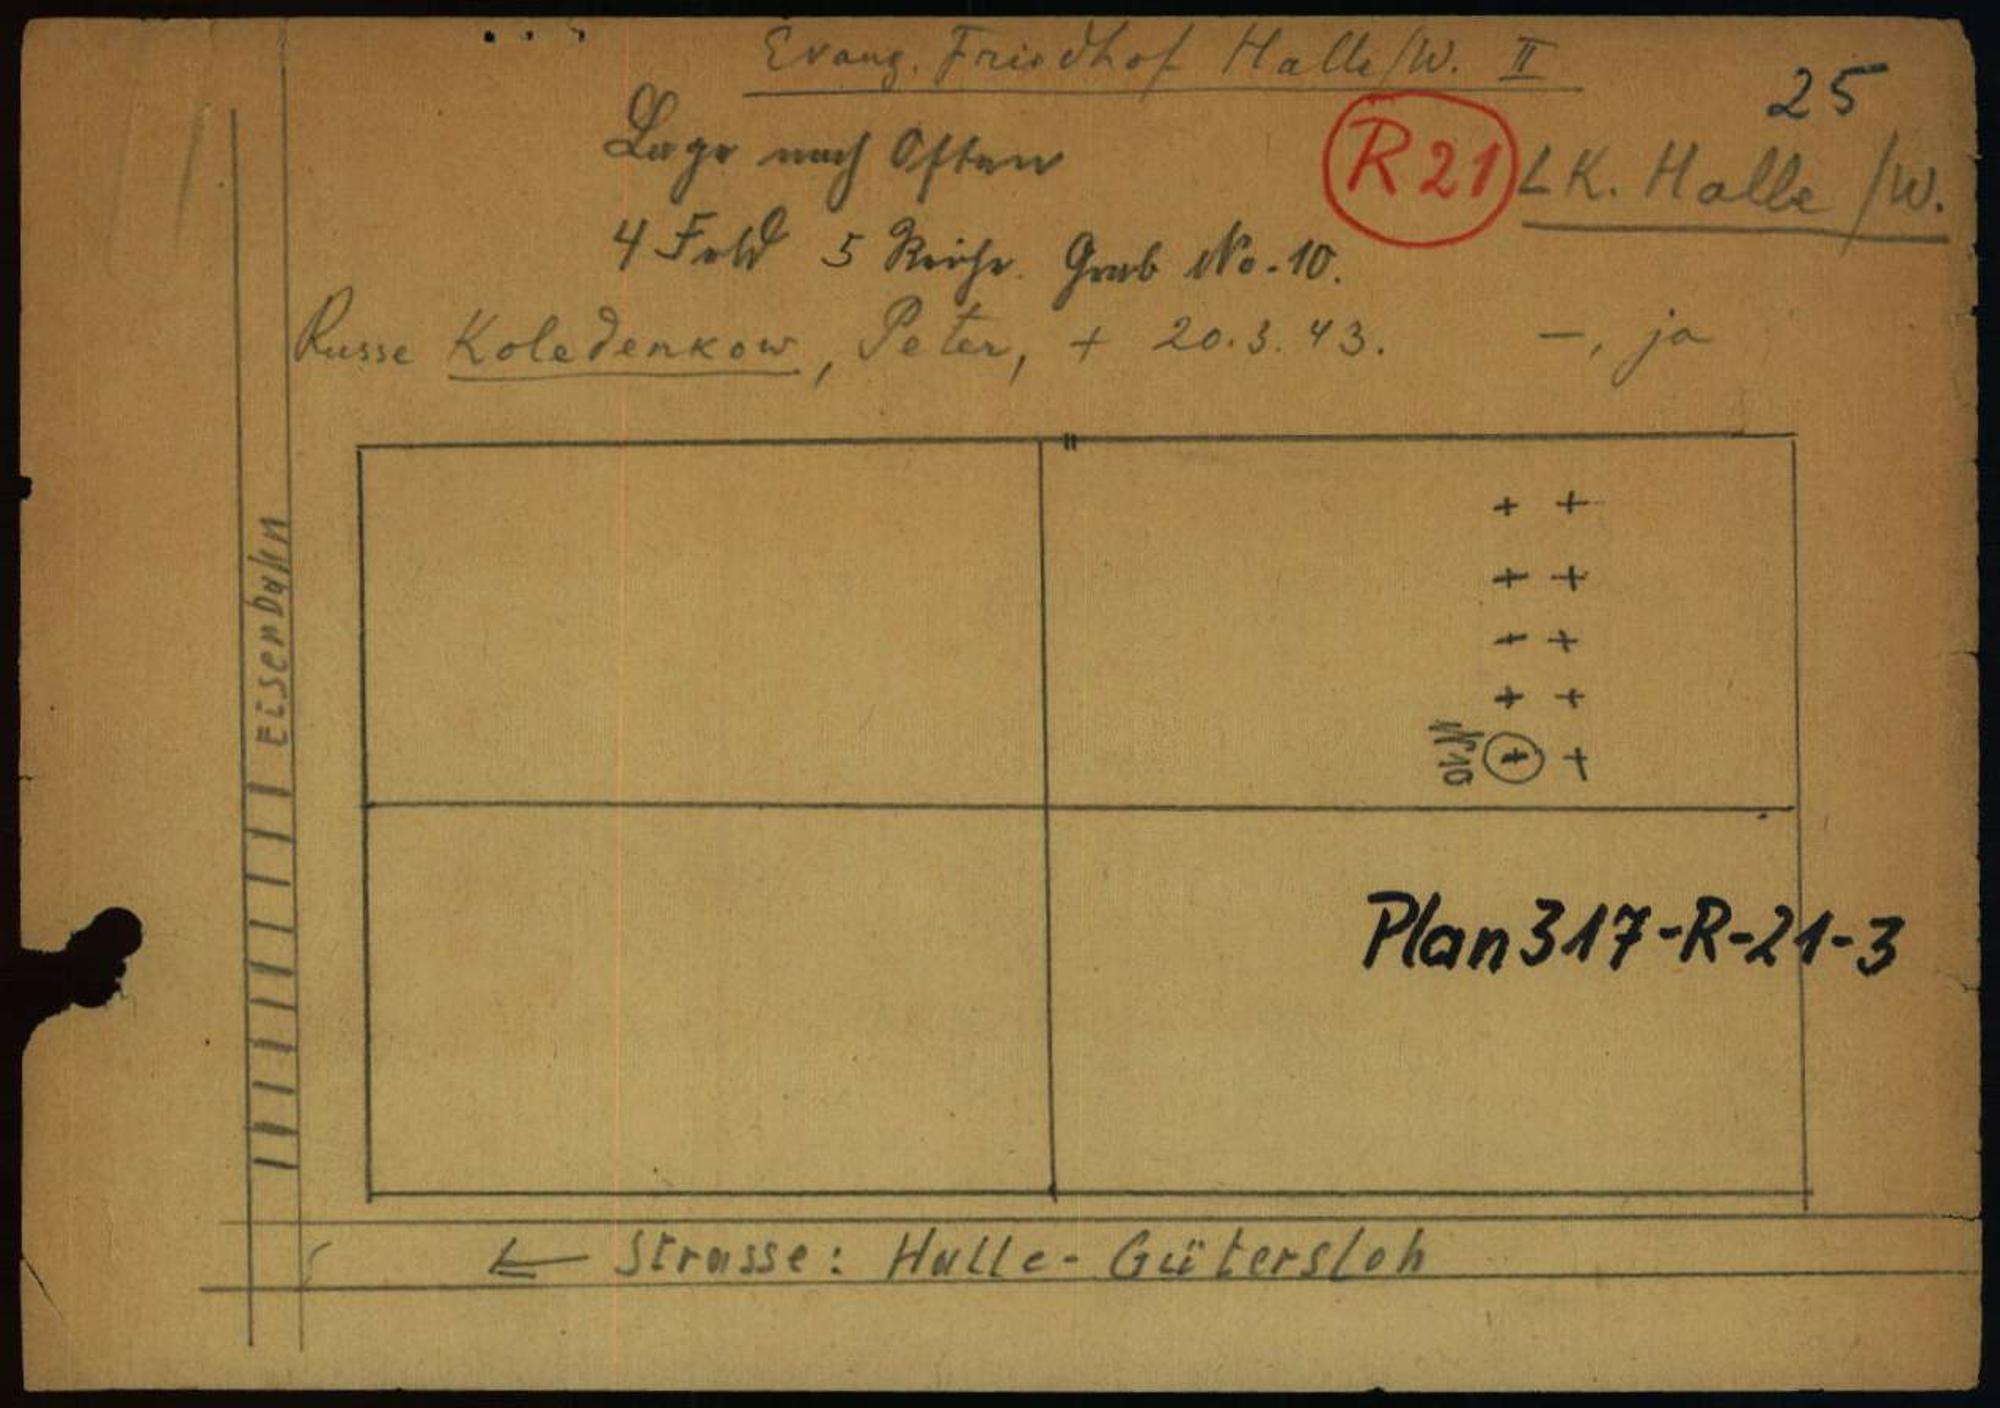 Evang. Friedhof Halle/W. II
25
Lage nach Osten
R 21
LK. Halle /W.
4 Feld 5 Reihe. Grab No. 10.
Russe Koledenkow, Peter, + 20.3.43. –, ja
Eisenbahn
N 10
Plan 317-R-21-3
← Strasse: Halle-Gütersloh